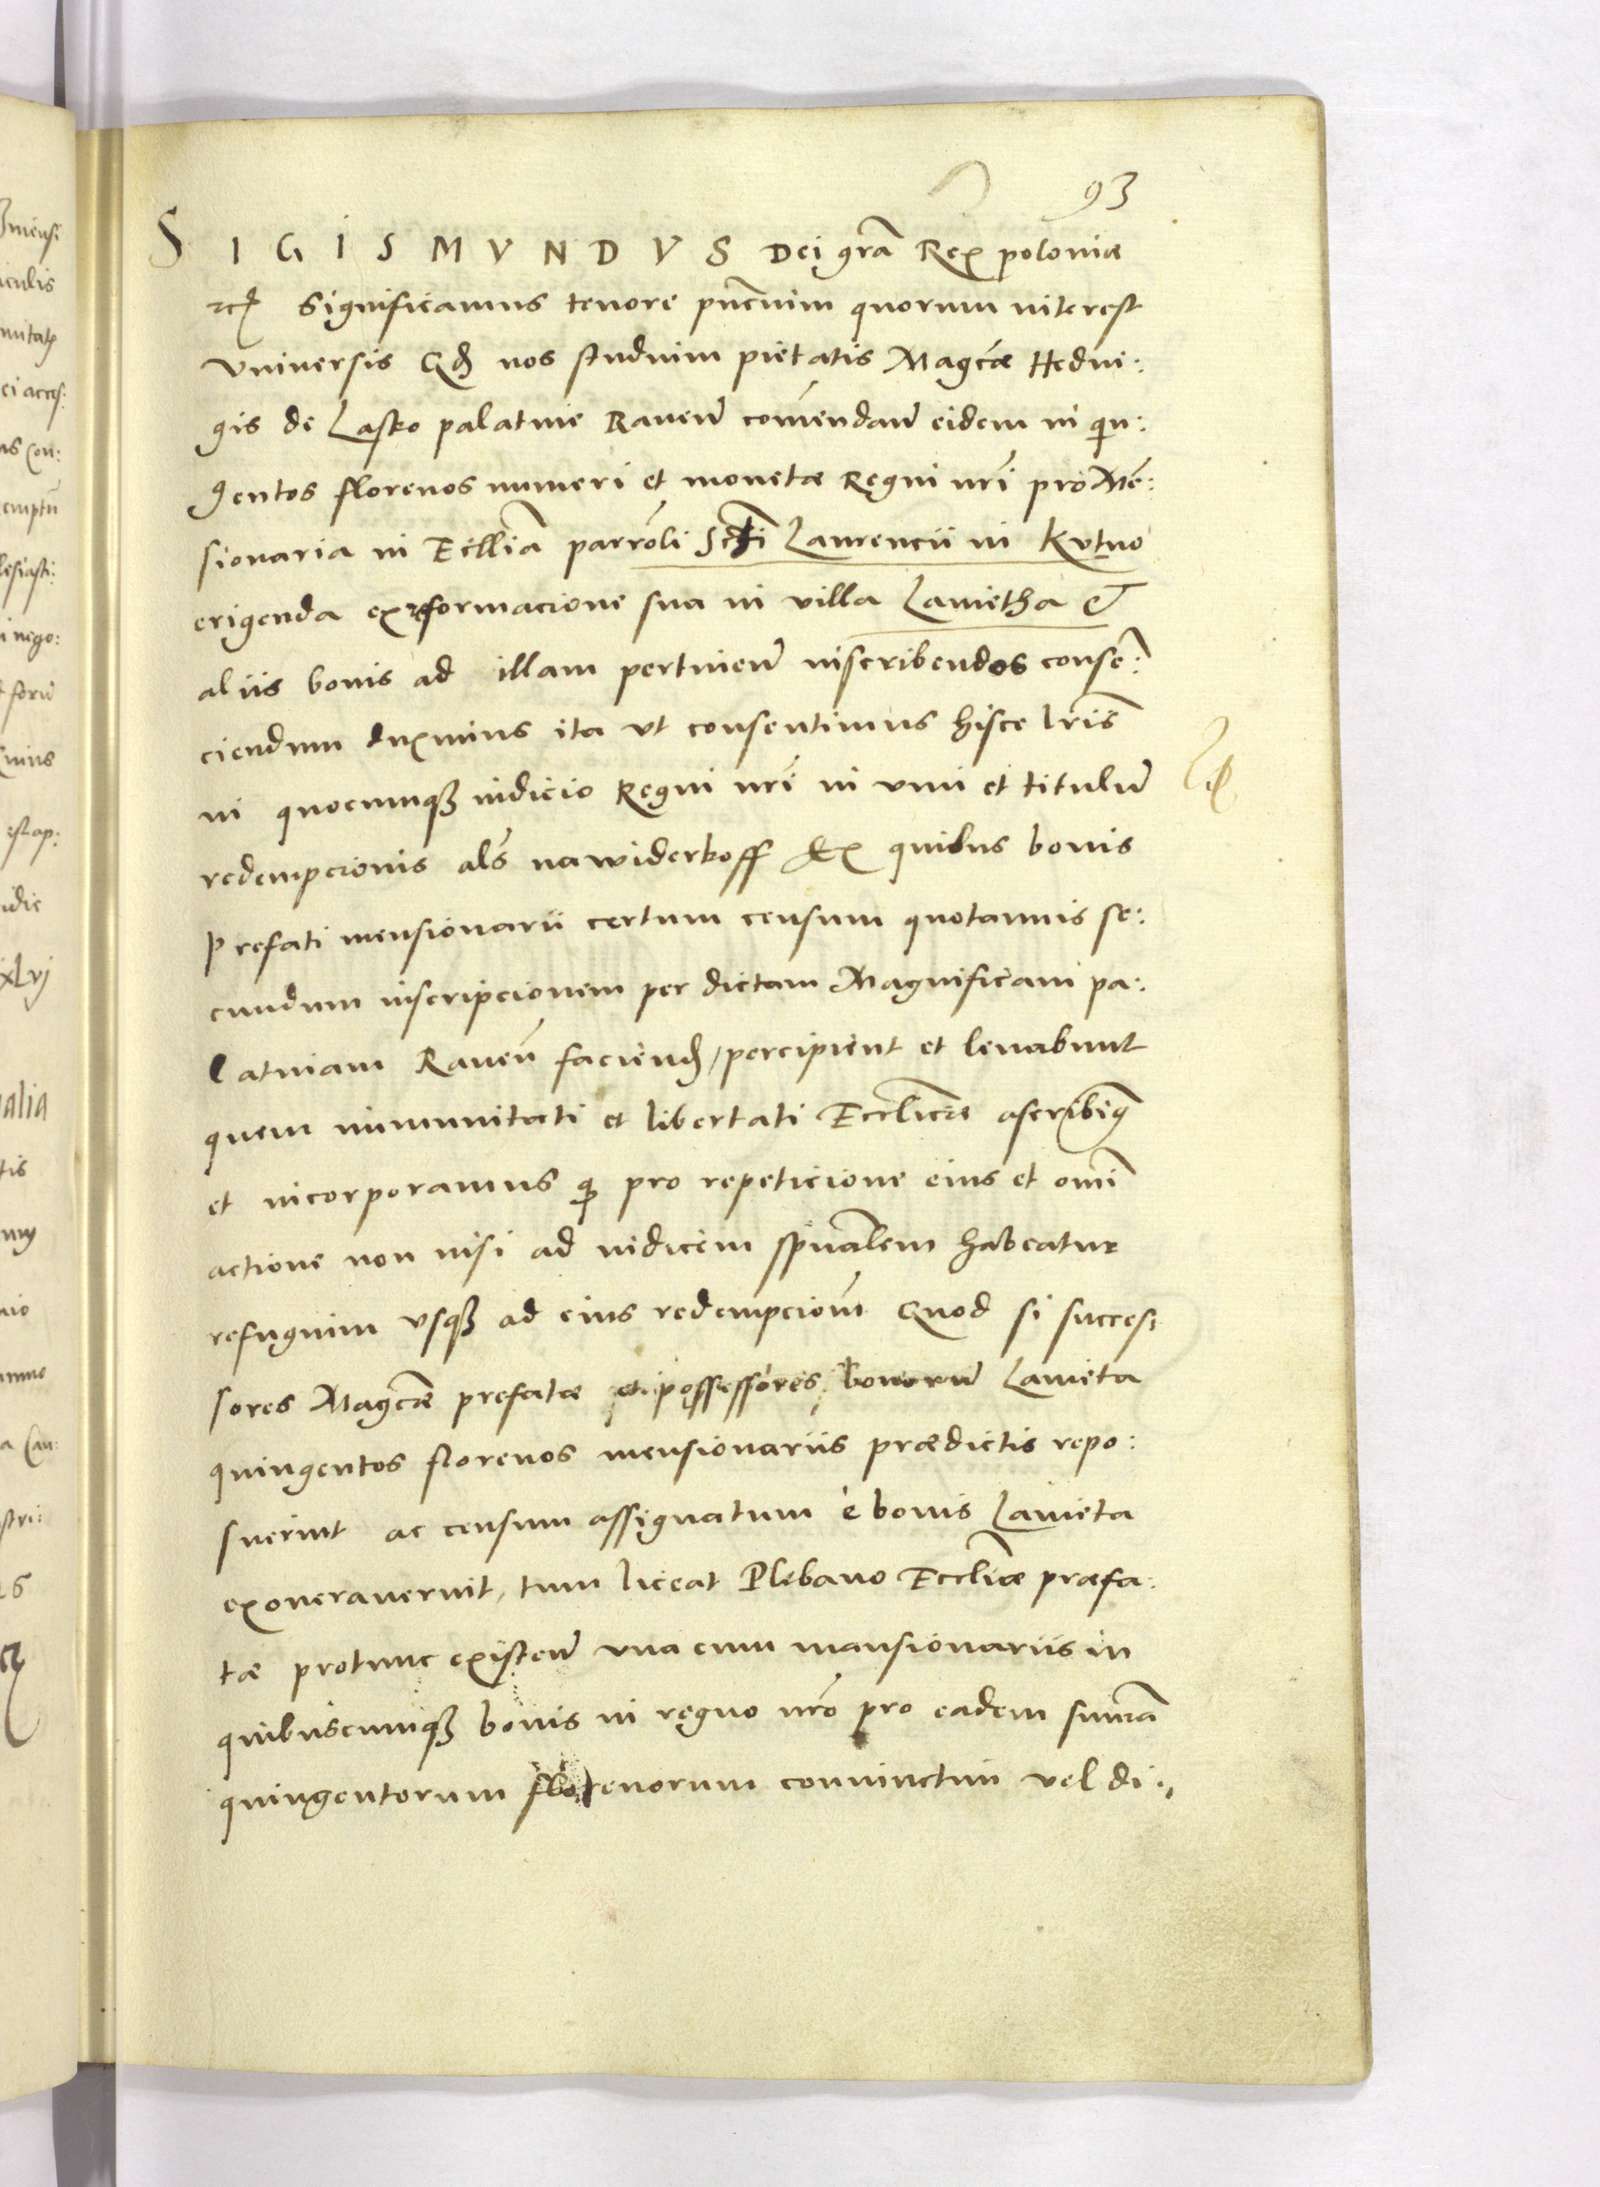 93
SIGISMVNDVS Dei grã Rex poloniæ
etc Significamus tenore pñcium quorum interest
vniuersis Qđ nos studium pietatis Magcæ Hedui:
gis de Lasko palatine Rauen̄ comendan̄ eidem in quin:
gentos florenos numeri et monetæ Regni nr̄i pro Mē:
sionaria in Ecclīia parroli Scti Laurencii in Kutno
erigenda ex reformacione sua in villa Lanietha et
aliis bonis ad illam pertinen̄ inscribendos consē:
ciendum duximus ita vt consentimus hisce lr̄is
in quocunqȝ iudicio Regni nr̄i in vim et titulum̄
redempcionis als̄ nawiderkoff Ex quibus bonis
prefati mensionarii certum censum quotannis se:
cundum inscripcionem per dictam Magnificam pa:
latinam Rauen̄ faciend, percipient et leuabunt
quem immunitati et libertati Eccl̄icæ ascribimꝰ
et incorporamus qui pro repeticione eius et om̄i
actione non nisi ad iudicem spūalem habeatur
refugium vsqȝ ad eius redempcionē Quod si succes:
sores Magcæ prefatæ et possessores bonorum̄ Lanieta
quingentos florenos mensionariis prædictis repo:
suerint ac censum assignatum è bonis Lanieta
exonerauerint, tum liceat Plebano Eccl̄iæ præfa:
tæ protunc existen̄ vna cum mansionariis in
quibuscunqȝ bonis in regno nr̄o pro eadem sum̄a
quingentorum florenorum coniunctim vel di: